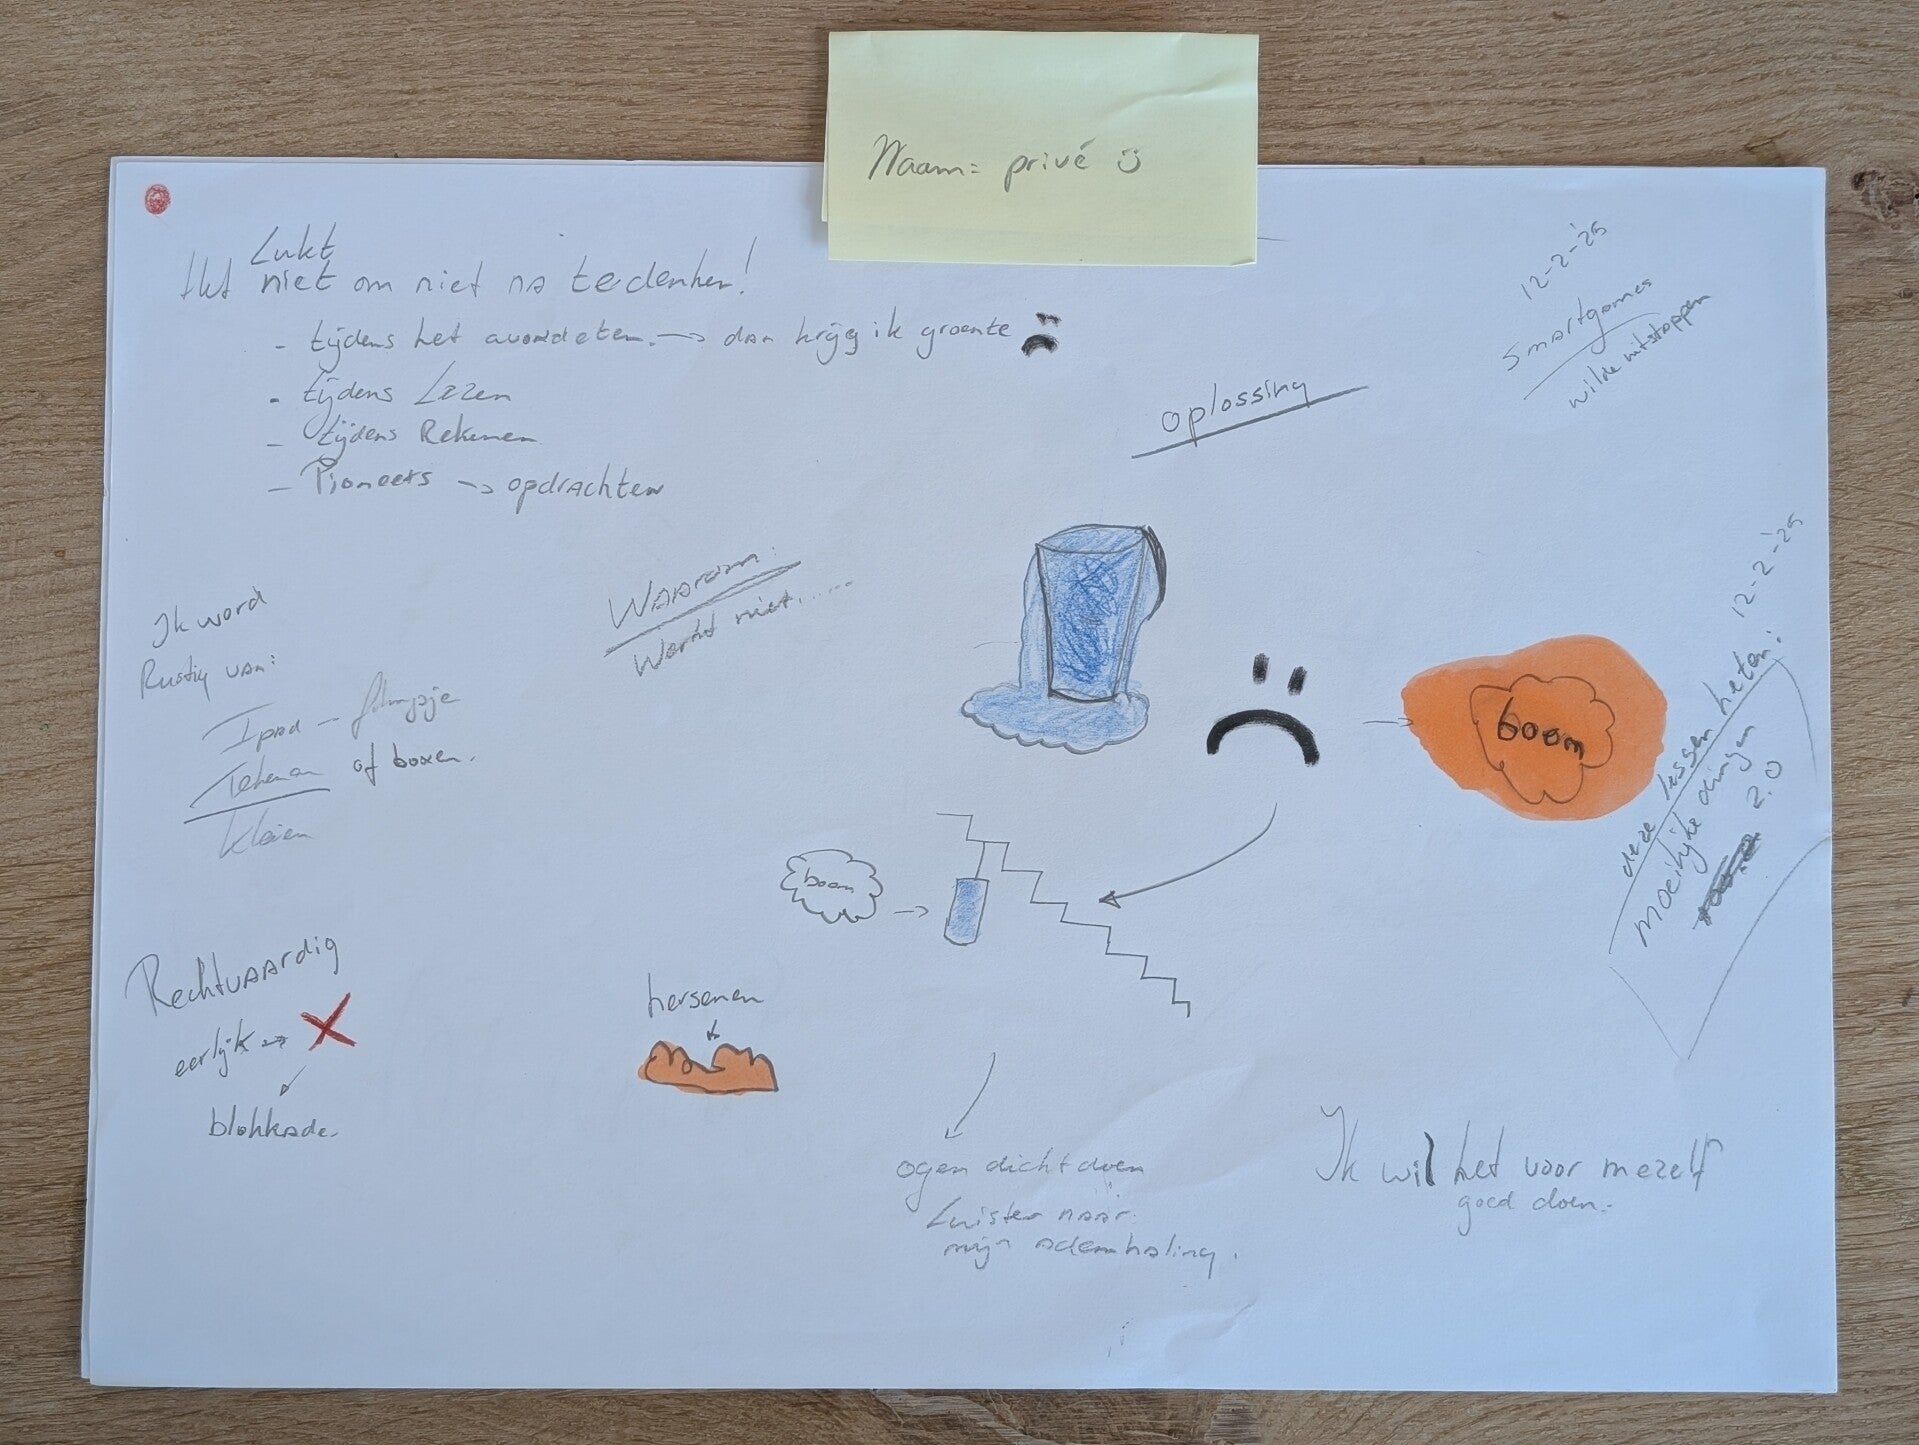 Naam= privé
Lukt
Het niet om niet na te denken!
- tijdens het avondeten. → dan krijg ik groente
- tijdens Lezen
- tijdens Rekenen
- Pioneers → opdrachten
12-2-'25
Smartgames
wilde uitstappen
oplossing
Waarom:
Werkt niet......
Ik word
Rustig van:
Ipad - filmpje
Tekenen of boxen.
kleien
boom
12-2-'25
deze lessen heten:
moeilijke dingen
2.0
boom
Rechtvaardig
eerlijk →
blokkade.
hersenen
ogen dicht doen
Luister naar
mijn ademhaling.
Ik wil het voor mezelf
goed doen.